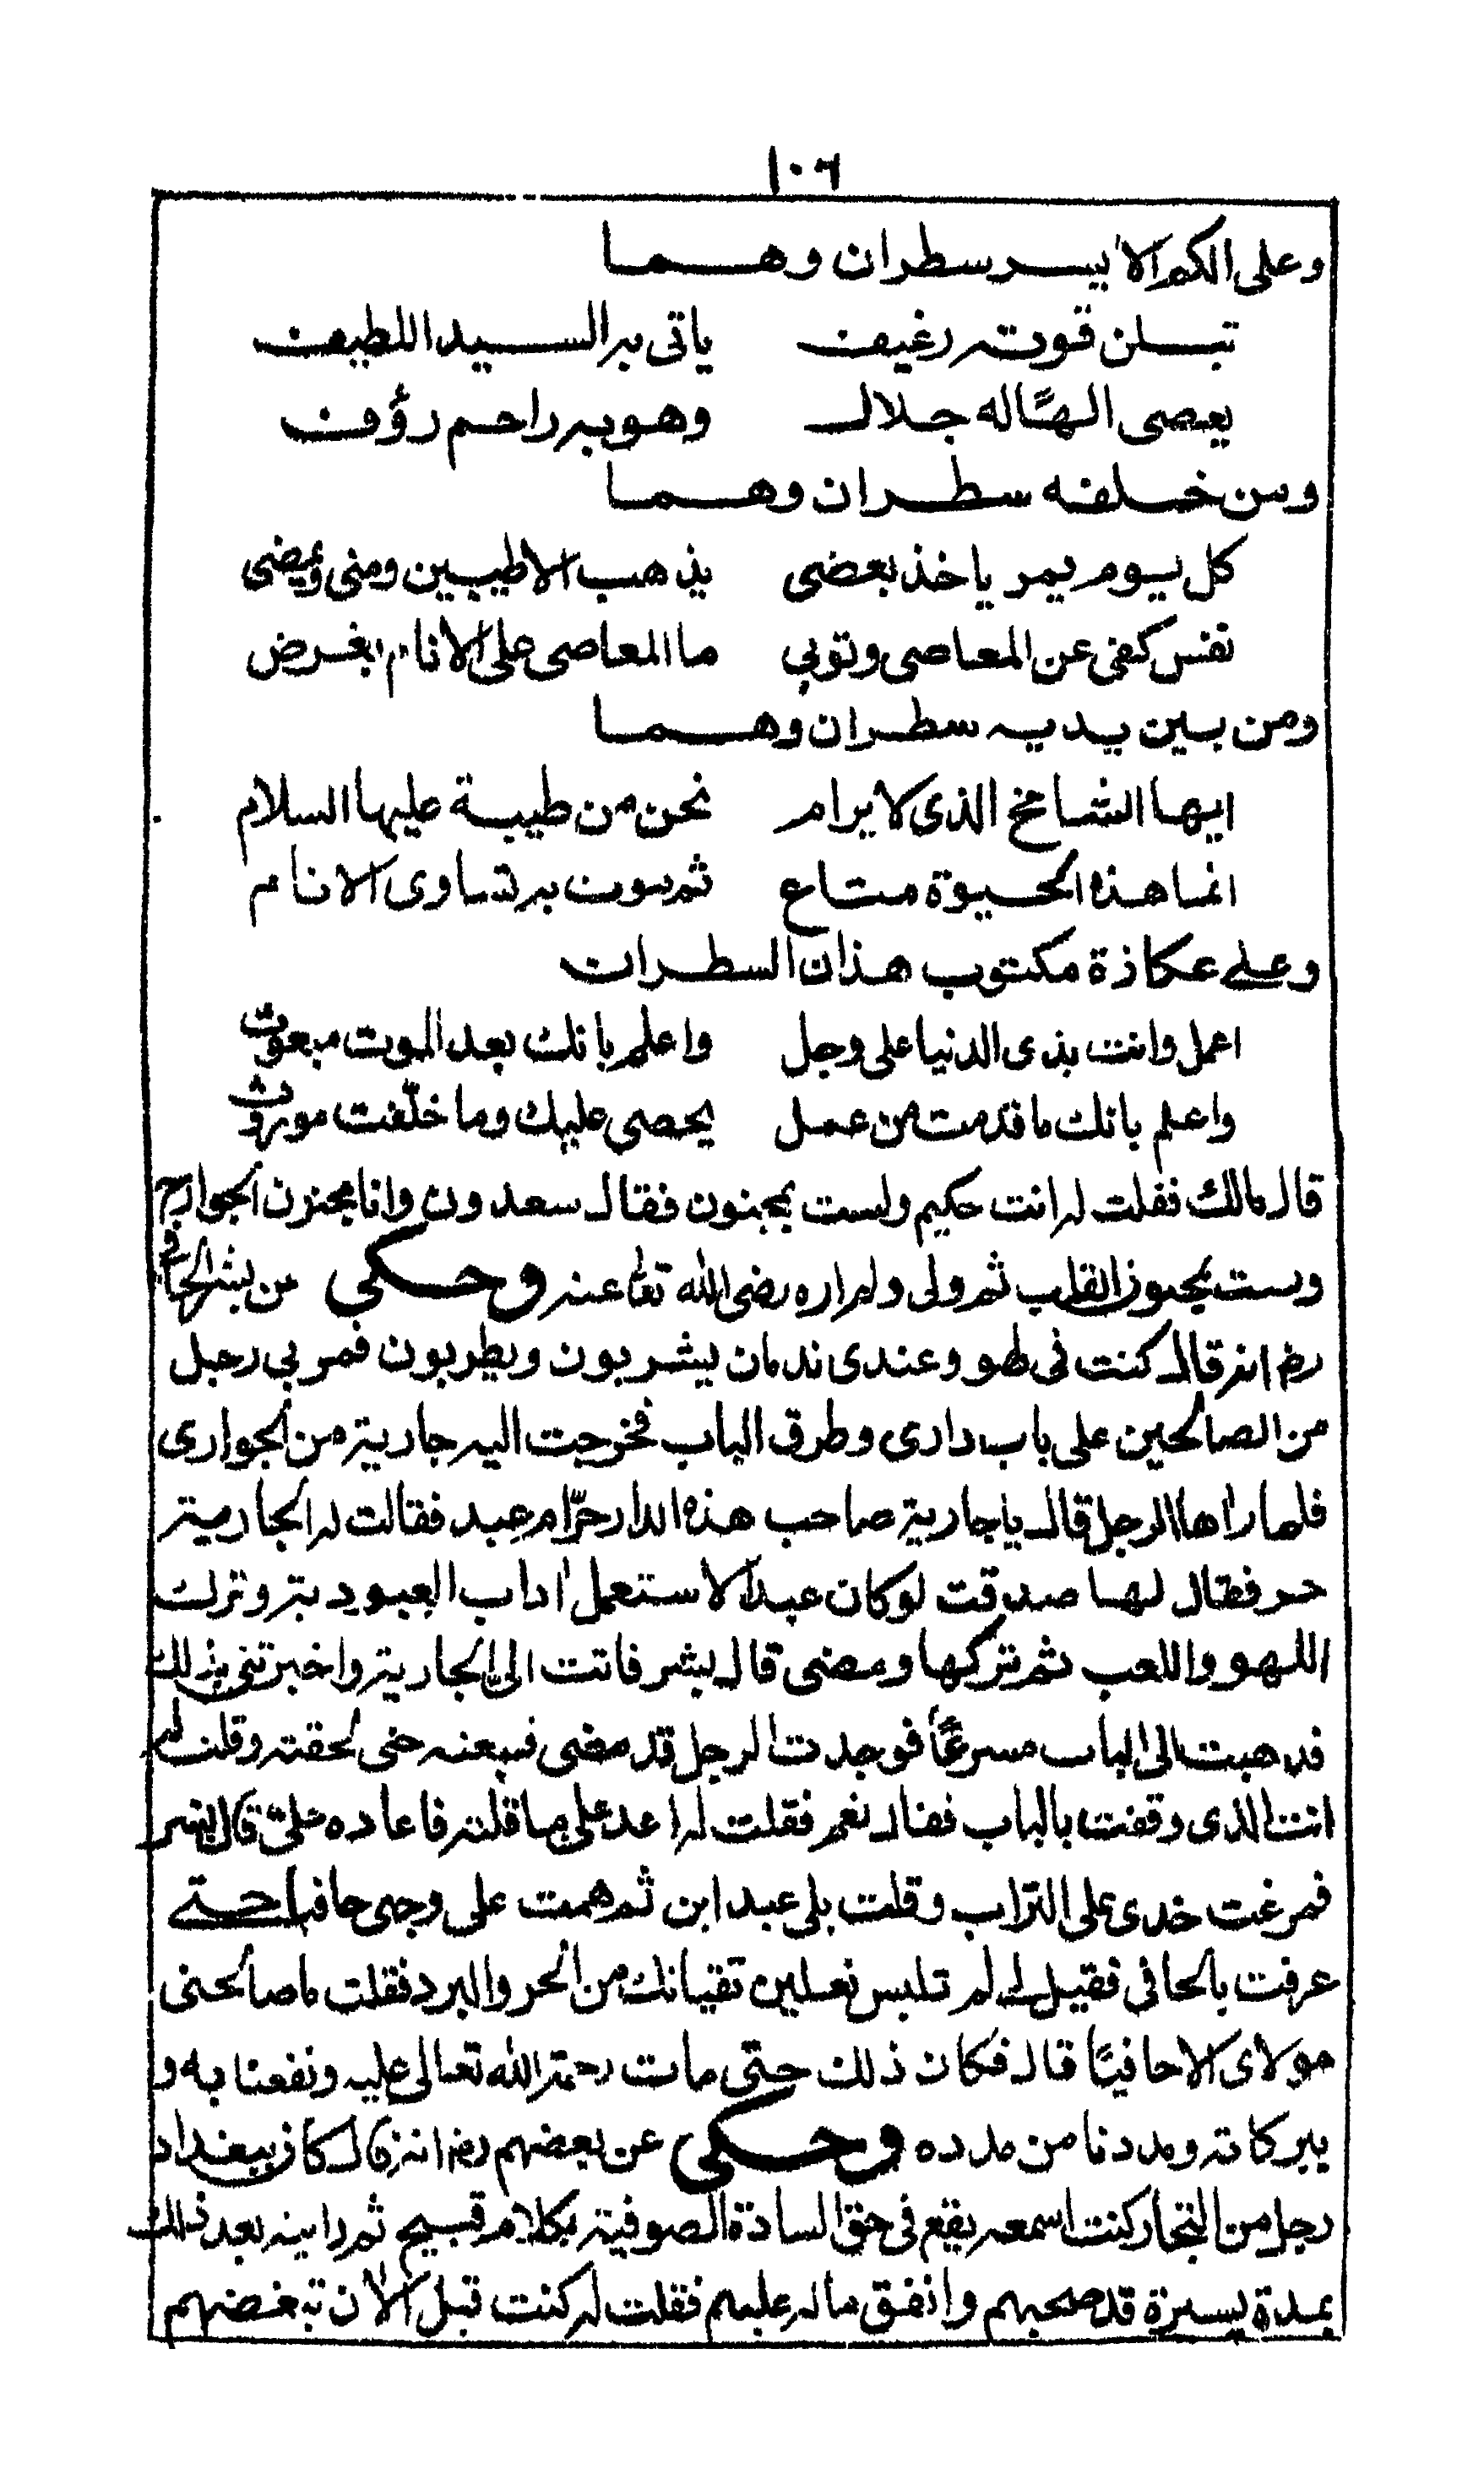 ١٠٦
وعلى الكم الايسر سطران وهما
تبا لمن قوته رغيف ياتى به السيد اللطيف
يعصى الهًا له جلال وهو به راحم رؤف
ومن خلفه سطران وهما
كل يوم يمر ياخذ بعضى يذهب الاطيبين ومنى ويمضى
نفس كفى عن المعاصى وتوبى ما المعاصى على الانام بفرض
ومن بين يديه سطران وهما
ايها الشامخ الذى لا يرام نحن من طيبة عليها السلام
انما هذه الحيوة متاع ثم موت به تساوى الانام
وعلى عكازة مكتوب هذان السطران
اعمل وانت بذى الدنيا على وجل واعلم بانك بعد الموت مبعوث
واعلم بانك ما قدمت من عمل يحصى عليك وما خلّفت موروث
قال مالك فقلت له انت حكيم ولست بمجنون فقال سعدون وانا مجنون الجوارح
ولست بمجنون القلب ثم ولى ولم اره رضى الله تعا عنه وحكى عن بشر الحافى
رضـ انه قال كنت فى لهو وعندى ندمان يشربون ويطربون فمر بى رجل
من الصالحين على باب دارى وطرق الباب فخرجت اليه جارية من الجوارى
فلما راها الرجل قال يا جارية صاحب هذه الدار حرّ ام عبد فقالت له الجارية
حر فقال لها صدقت لو كان عبدا لاستعمل اداب العبودية وترك
اللهو واللعب ثم تركها ومضى قال بشر فاتت الىّ الجارية واخبرتنى بذلك
فذهبت الى الباب مسرعًا فوجدت الرجل قد مضى فتبعته حتى لحقته وقلت له
انت الذى وقفت بالباب فقال نعم فقلت له اعد على ما قلته فاعاده علىّ قال بشر
فمرغت خدى على التراب وقلت بلى عبد ابن ثم همت على وجهى حافيا حتى
عرفت بالحافى فقيل لى لم تلبس نعلين تقيانك من الحر والبرد فقلت ما صالحنى
مولاى الا حافيًا قال فكان ذلك حتى مات رحمة الله تعالى عليه ونفعنا به و
ببركاته ومددنا من مدده وحكى عن بعضهم رضـ انه قال كان ببغداد
رجل من التجار كنت اسمعه يقع فى حق السادة الصوفية بكلام قبيح ثم رايته بعد ذلك
بمدة يسيرة قد صحبهم وانفق ماله عليهم فقلت له كنت قبل الان تبغضهم